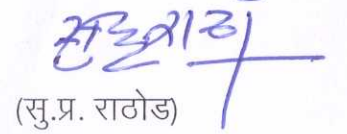 (सु.प्र. राठोड)